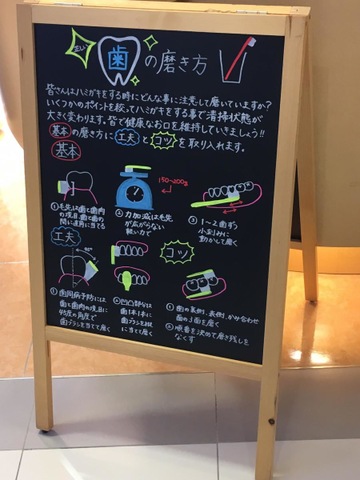 正しい 歯の磨き方
皆さんはハミガキをする時にどんな事に注意して磨いていますか?
いくつかのポイントを絞ってハミガキをする事で清掃状態が
大きく変わります。皆で健康なお口を維持していきましょう!!
基本の磨き方に工夫とコツを取り入れます。
基本
150~200g
①毛先は歯と歯肉
の境目、歯と歯の
間に直角に当てる
②力加減は毛先
が広がらない
軽い力で
③1~2歯ずつ
小きざみに
動かして磨く
工夫
コツ
45°
①歯周病予防には
歯と歯肉の境目に
45度の角度で
歯ブラシを当てて磨く
②凹凸部分は
歯1本1本に
歯ブラシを縦
に当て磨く
①歯の裏側、表側、かみ合わせ
歯の3面を磨く
②順番を決めて磨き残しを
なくす